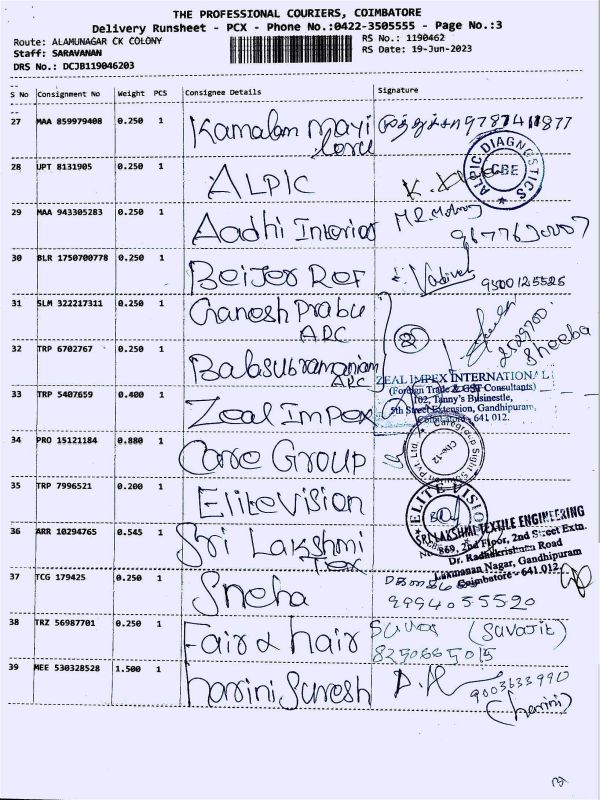 THE PROFESSIONAL COURIERS, COIMBATORE
Delivery Runsheet - PCX - Phone No.:0422-3505555 - Page No.:3
Route: ALAMUNAGAR CK COLONY
RS No.: 1190462
Staff: SARAVANAN
RS Date: 19-Jun-2023
DRS No.: DCJB119046203
S No Consignment No Weight PCS Consignee Details Signature
27 MAA 859979408 0.250 1 Kamalam Mayi
28 UPT 8131905 0.250 1 ALPIC
ALPIC DIAGNOSTICS CBE
29 MAA 943305283 0.250 1 Aadhi Interior
30 BLR 1750700778 0.250 1 Beijer Ref
9500125525
31 SLM 322217311 0.250 1 Ganesh Prabu
ARC
Sheeba
32 TRP 6702767 0.250 1 Balasubramaniam
ARC
ZEAL IMPEX INTERNATIONAL
(Foreign Trade & GST Consultants)
102, Tanny's Businestle,
5th Street Extension, Gandhipuram,
Coimbatore - 641 012.
33 TRP 5407659 0.400 1 Zeal Impex
34 PRO 15121184 0.880 1 Care Group
Cbe-12
35 TRP 7996521 0.200 1 Elite Vision
ELITE VISION
36 ARR 10294765 0.545 1 Sri Lakshmi
Tex
SRI LAKSHMI TEXTILE ENGINEERING
869, 2nd Floor, 2nd Street Extn.
Dr. Radhakrishnan Road
Laxmanan Nagar, Gandhipuram
Coimbatore - 641 012
37 TCG 179425 0.250 1 Sneha
9994055520
38 TRZ 56987701 0.250 1 Fair & hair
(Suvajit)
8250665015
39 MEE 530328528 1.500 1 harrini Suresh
9003633990
(harrini)